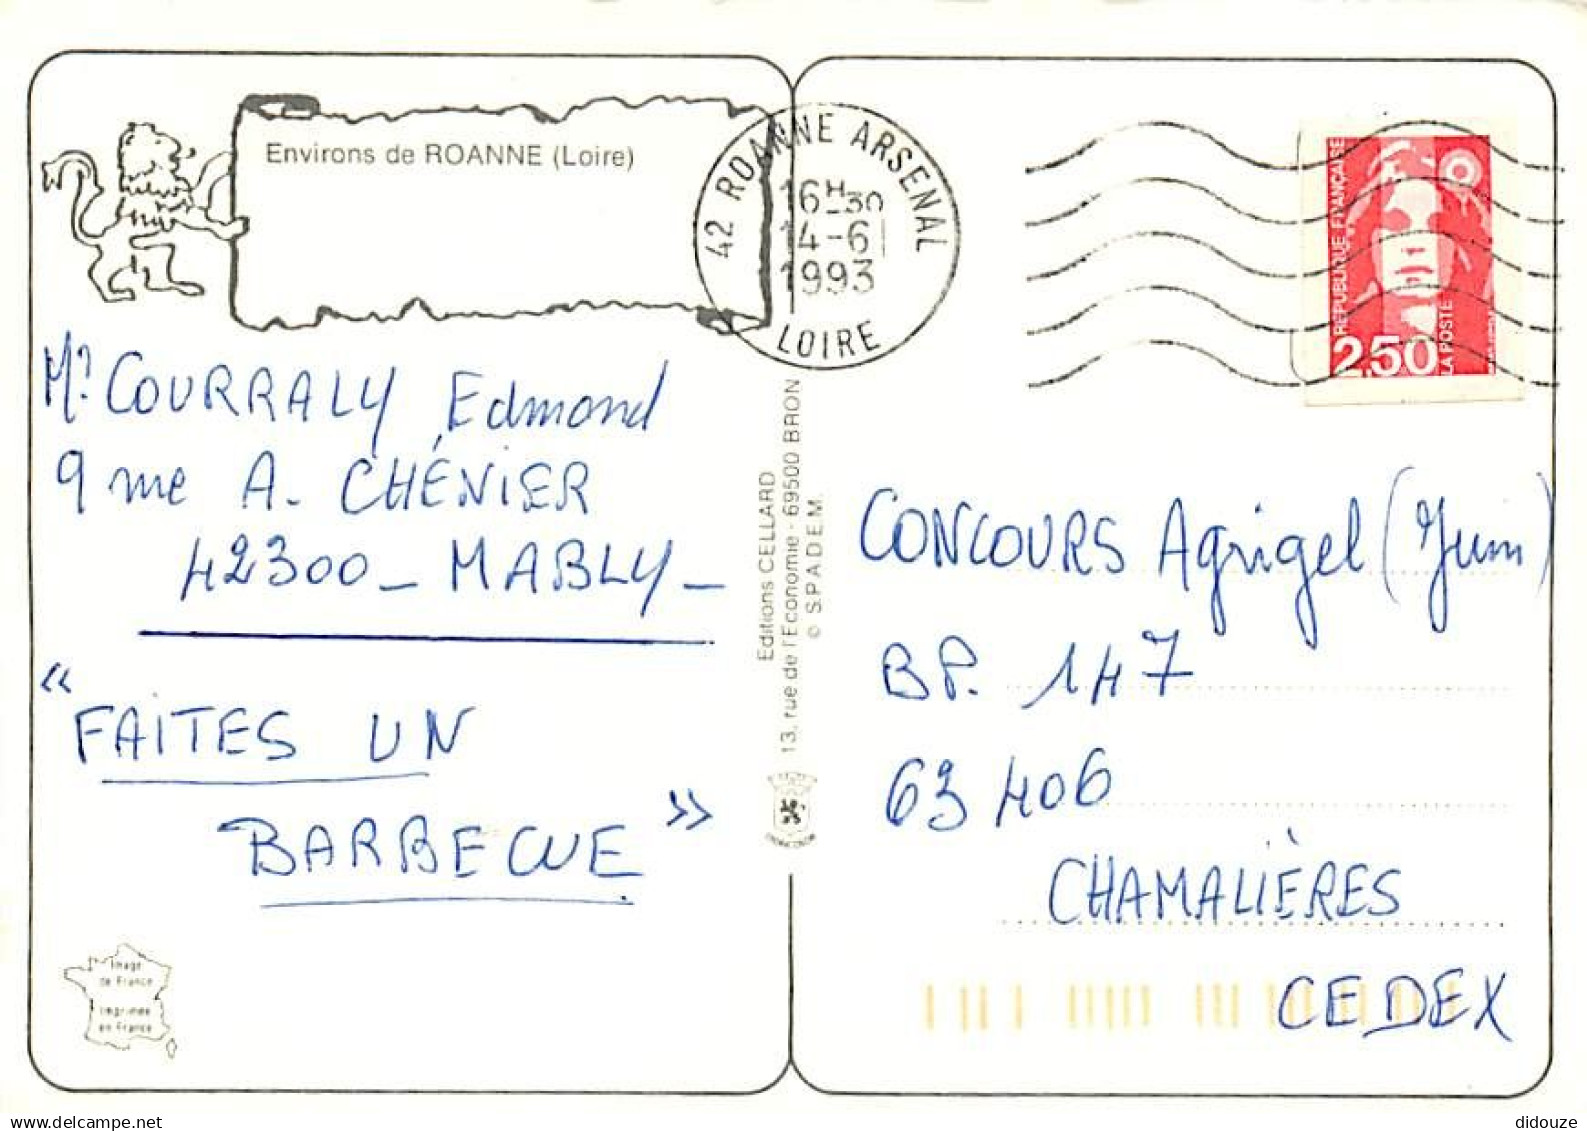 Environs de ROANNE (Loire)
42 ROANNE ARSENAL
16H30
14-6
1993
LOIRE
RÉPUBLIQUE FRANÇAISE
2,50
LA POSTE
Mr COURRALY Edmond
9 rue A. CHÉNIER
42300 - MABLY -
"FAITES UN
BARBECUE"
Editions CELLARD
13, rue de l'Economie - 69500 BRON
© S.P.A.D.E.M.
CONCOURS Agrigel (Juin)
BP. 147
63406
CHAMALIÈRES
CEDEX
Image
de France
Imprimée
en France
didouze